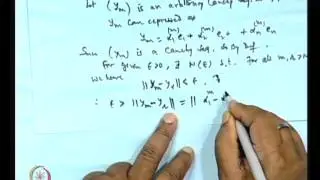 Let (y_m) is an arbitrary Cauchy seq.
y_m can expressed as
y_m = α_1^(m) e_1 + α_2^(m) e_2 + + α_n^(m) e_n
Since (y_m) is a Cauchy seq. so by def.
for given ε>0, ∃ N(ε) s.t. for all m, r > N
we have
||y_m - y_r|| < ε.
∴ ε > ||y_m - y_r|| = || α_1^m - α